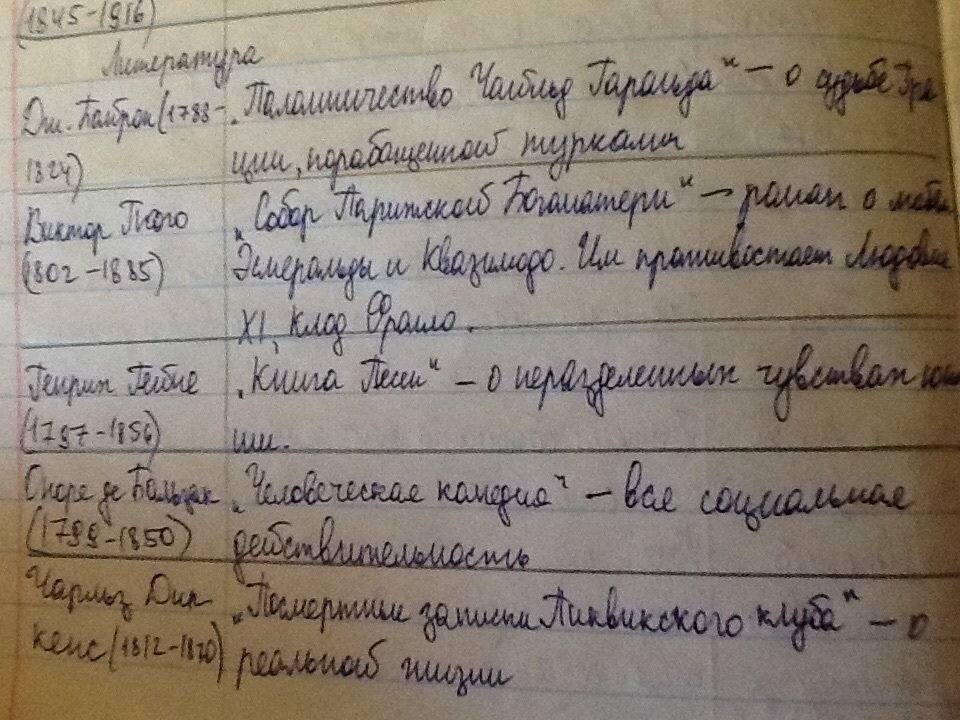 (1845-1916)
Литература
Дж. Байрон (1788-
1824)
„Паломничество Чайльд Гарольда" – о судьбе Гре
ции, порабащенной турками
Виктор Гюго
(1802-1885)
„Собор Парижской Богоматери" – роман о
Эсмеральды и Квазимодо. Им противостоят Людовик
XI, Клод Фролло.
Генрих Гейне
(1797-1856)
„Книга Песен" – о неразделенных чувствах
ши.
Оноре де Бальзак
(1799-1850)
„Человеческая комедия" – вся социальная
действительность
Чарльз Дик
кенс (1812-1870)
„Посмертные записки Пиквикского клуба" – о
реальной жизни